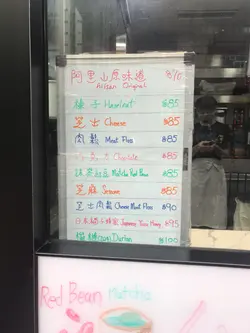 阿里山原味道 ฿80
Alisan Original
榛子 Hazelnut ฿85
芝士 Cheese ฿85
肉鬆 Meat Floss ฿85
Chocolate ฿85
抹茶紅豆 Matcha Red Bean ฿85
芝麻 Sesame ฿85
芝士肉鬆 Cheese Meat Floss ฿90
日本 Japanese Yuzu Honey ฿95
榴槤 Durian ฿100
Red Bean Matcha